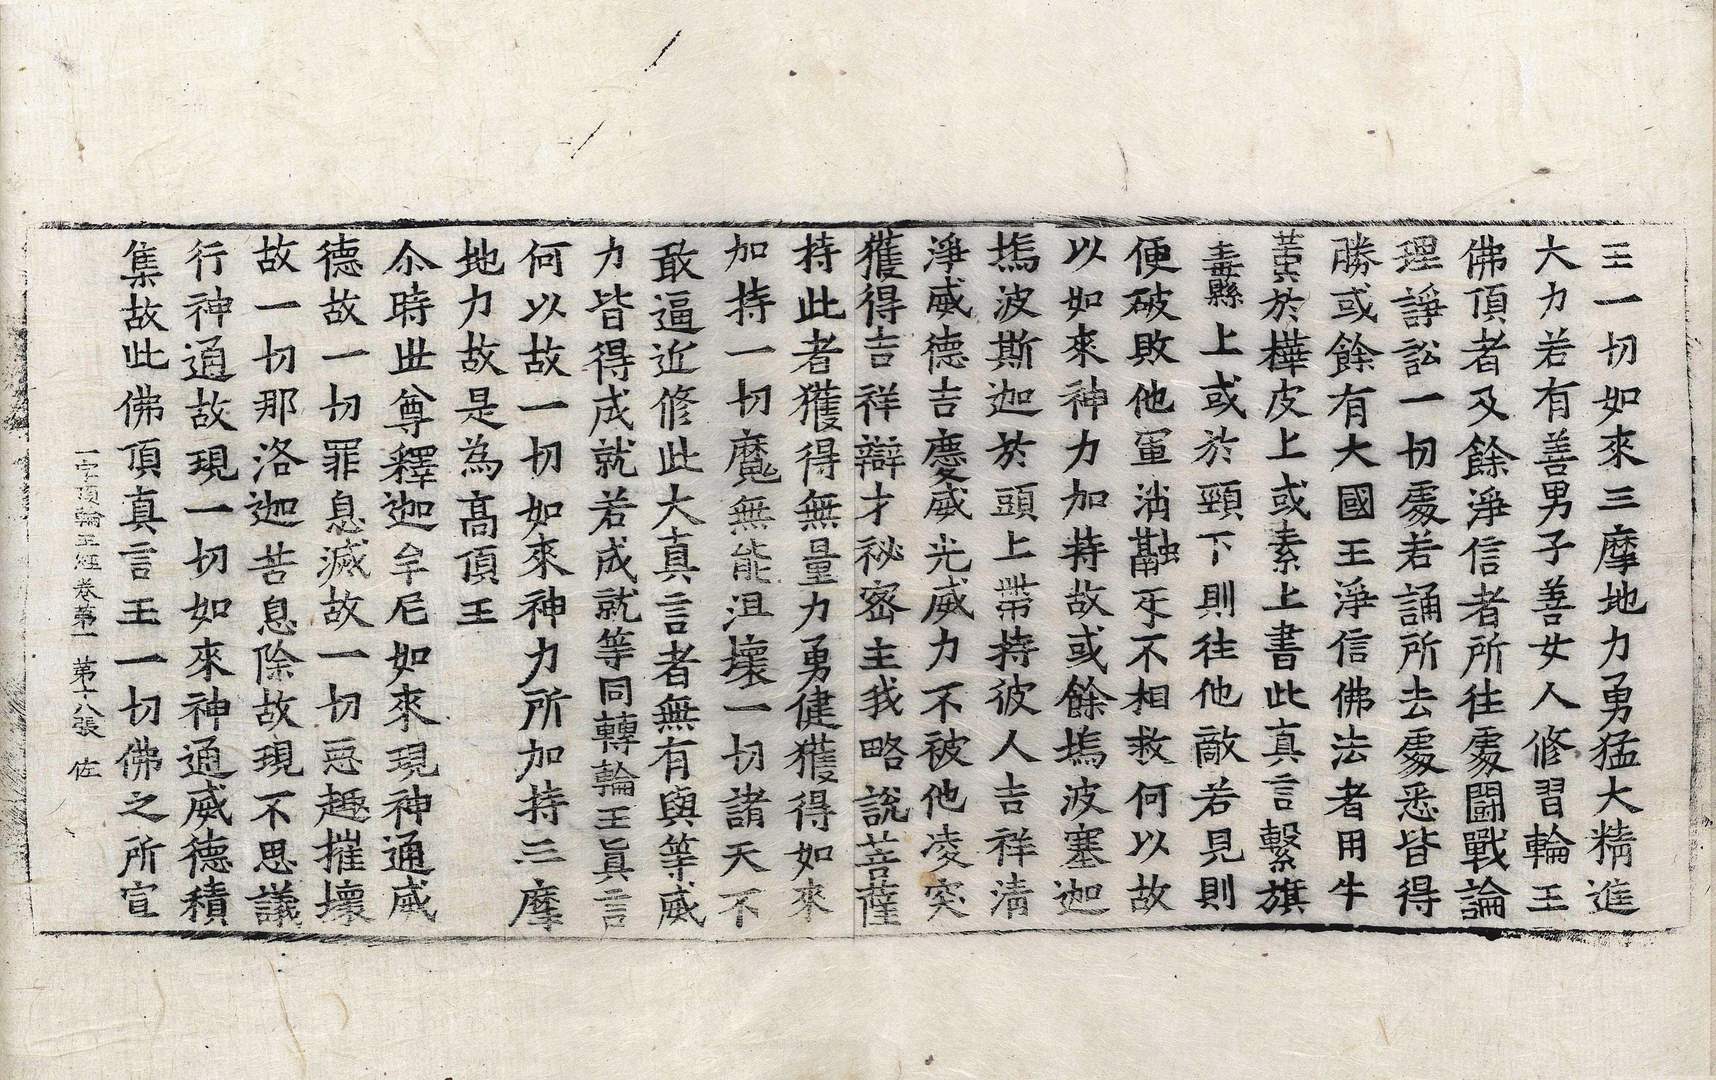 王一切如來三摩地力勇猛大精進
大力若有善男子善女人修習輪王
佛頂者及餘淨信者所往處鬪戰論
理諍訟一切處若誦所去處悉皆得
勝或餘有大國王淨信佛法者用牛
黃於樺皮上或素上書此真言繫旗
纛上或於頸下則往他敵若見則
便破敗他軍消融牙不相救何以故
以如來神力加持故或餘塢波塞迦
塢波斯迦於頭上帶持彼人吉祥清
淨威德吉慶威光威力不被他凌突
獲得吉祥辯才祕密主我略說菩薩
持此者獲得無量力勇健獲得如來
加持一切魔無能沮壞一切諸天不
敢逼近修此大真言者無有與等威
力皆得成就若成就等同轉輪王真言
何以故一切如來神力所加持三摩
地力故是為高頂王
尒時世尊釋迦牟尼如來現神通威
德故一切罪息滅故一切惡趣摧壞
故一切那洛迦苦息除故現不思議
行神通故現一切如來神通威德積
集故此佛頂真言王一切佛之所宣
一字頂輪王經卷第一　第十八張　佐